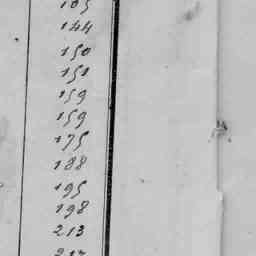 105
144
150
151
159
159
175
188
195
198
213